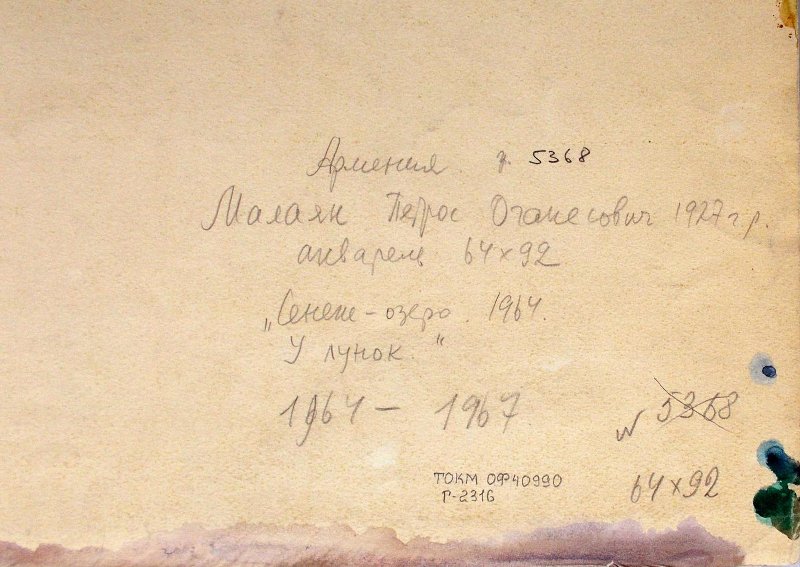 Армения р. 5368
Малаян Петрос Оганесович 1927 г.р.
акварель 64×92
„Сенеж-озеро. 1964.
У лунок.“
1964 – 1967
N 5368
ТОКМ ОФ40990
Г-2316
64×92